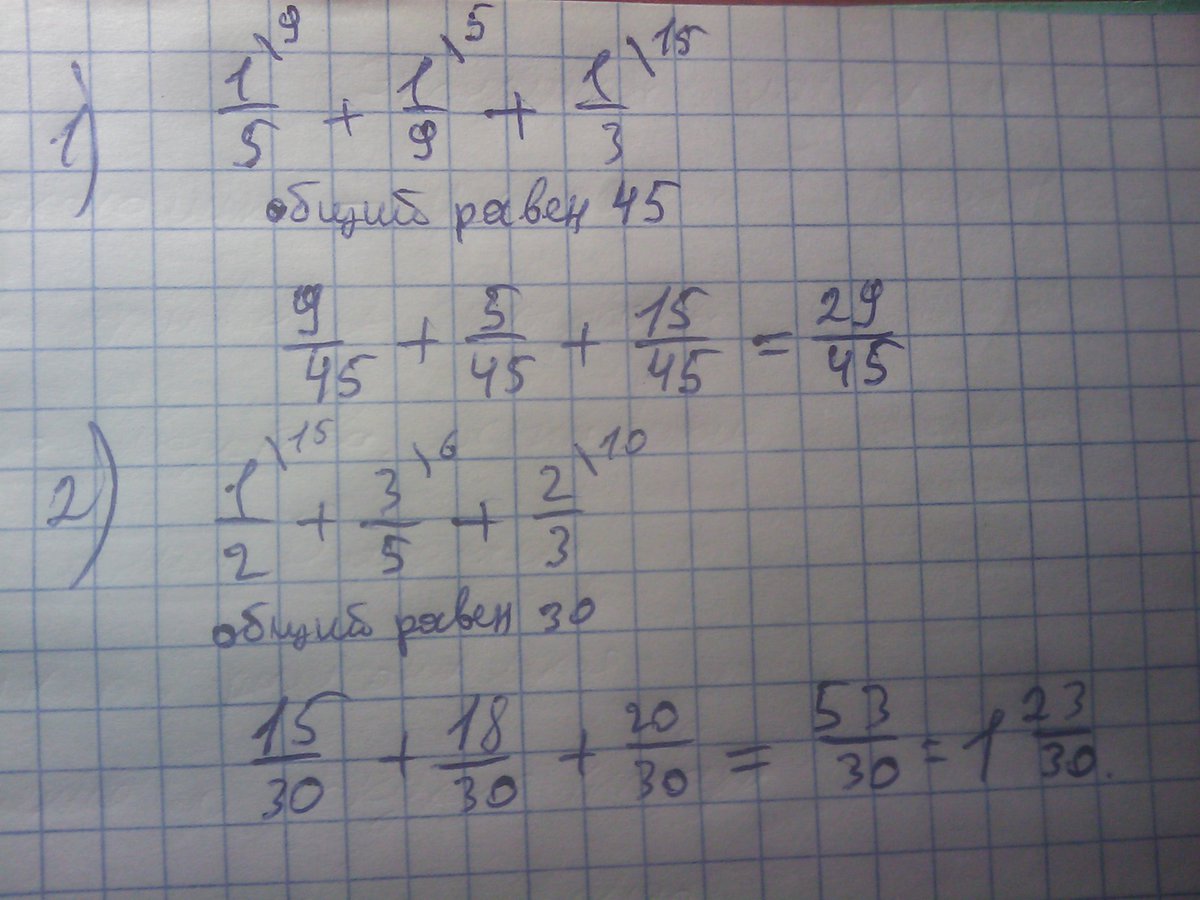 1) 1/5 \9 + 1/9 \5 + 1/3 \15
общий равен 45
9/45 + 5/45 + 15/45 = 29/45
2) 1/2 \15 + 3/5 \6 + 2/3 \10
общий равен 30
15/30 + 18/30 + 20/30 = 53/30 = 1 23/30.